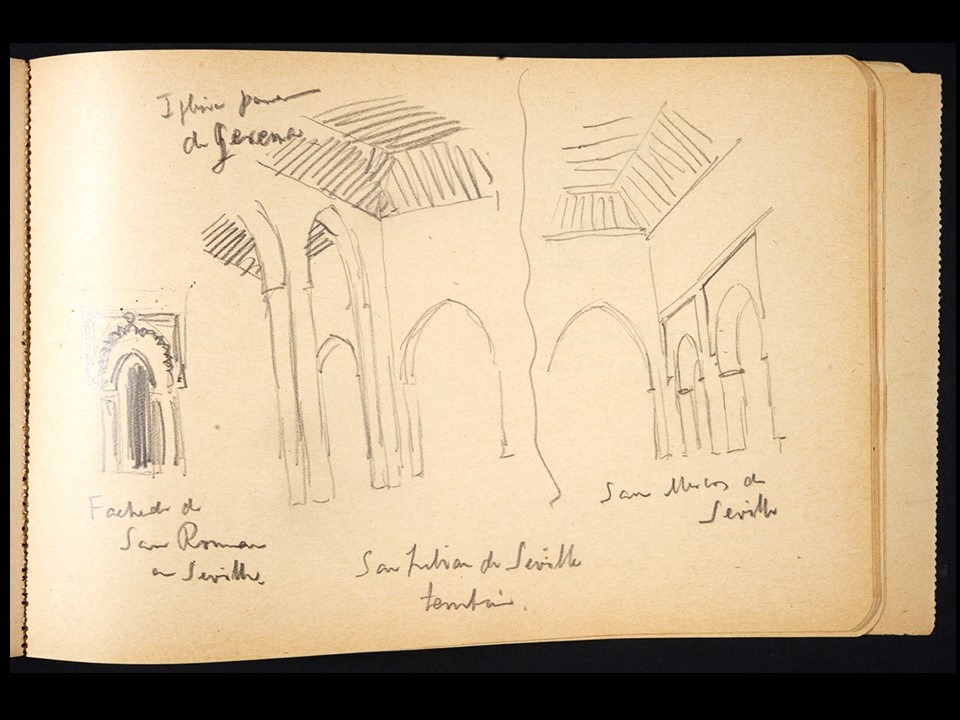 Iglesia
de Gerena
Fachada de
San Roman
en Sevilla.
San Julian de Sevilla
tembien.
San Marcos de
Sevilla